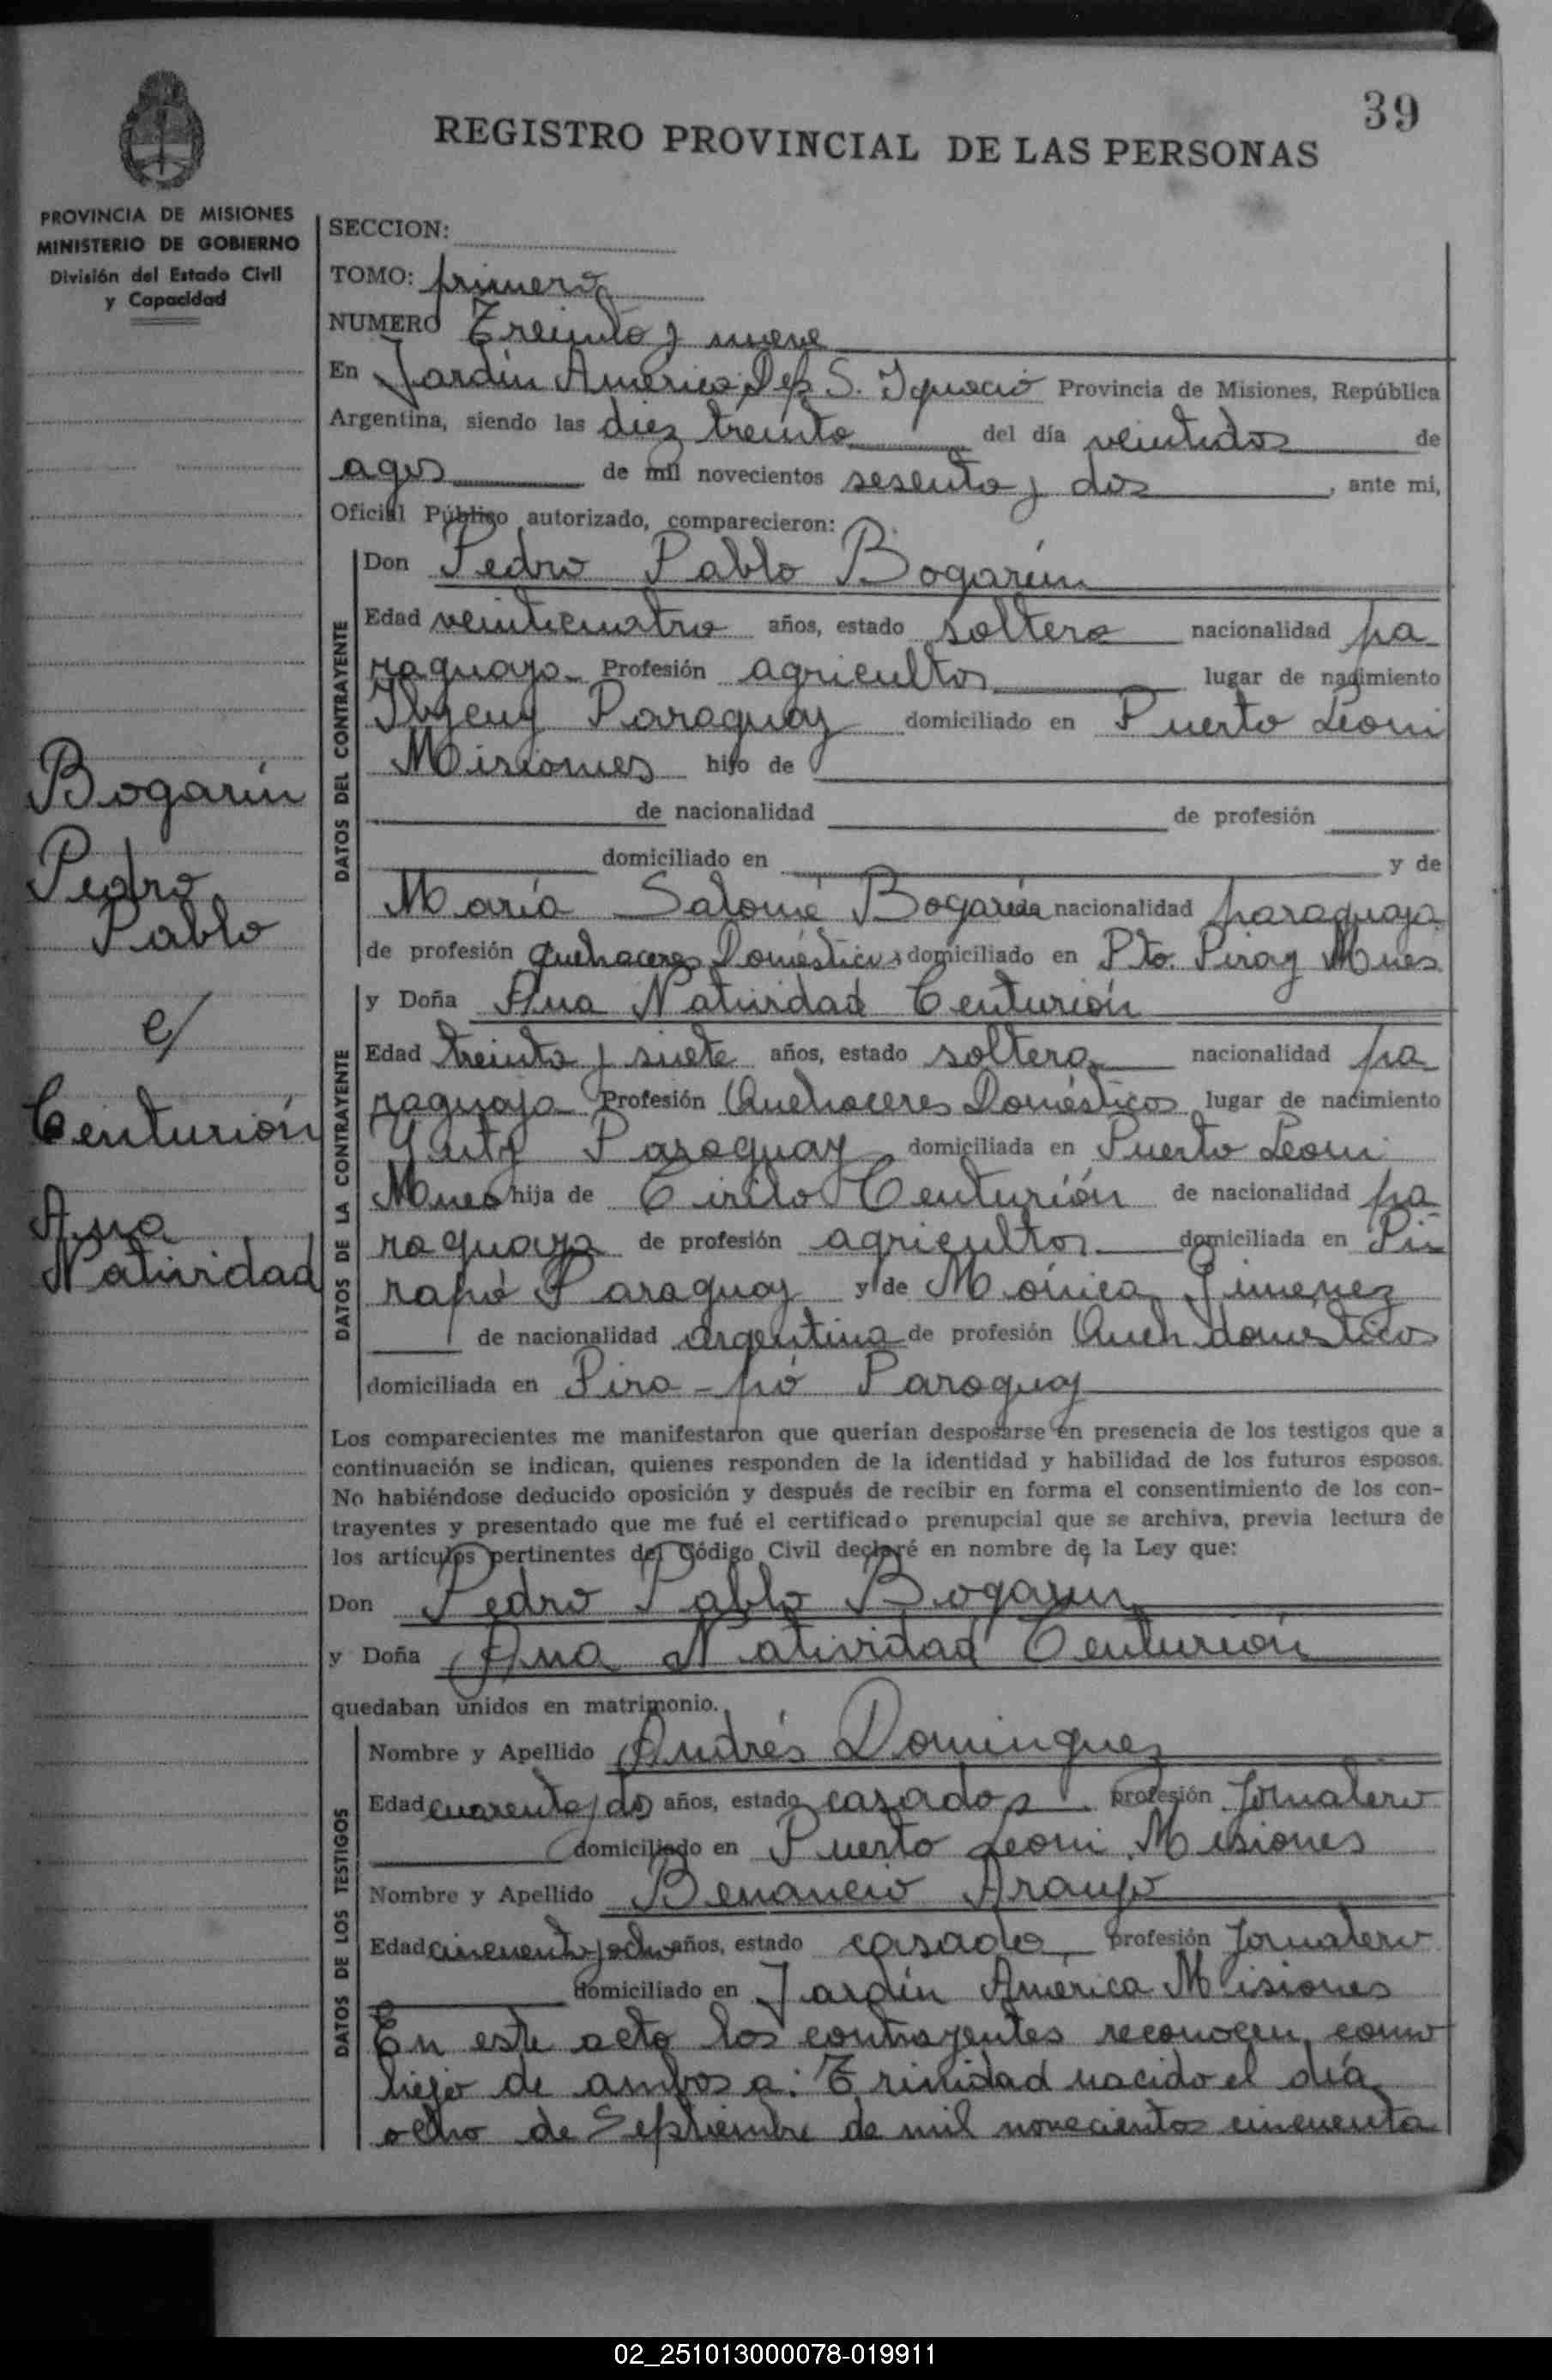 39
REGISTRO PROVINCIAL DE LAS PERSONAS
PROVINCIA DE MISIONES
MINISTERIO DE GOBIERNO
División del Estado Civil
y Capacidad
SECCION:
TOMO: primero
NUMERO Treinta y nueve
En Jardín América Dep S. Ignacio Provincia de Misiones, República
Argentina, siendo las diez treinta del día veintidos de
agos de mil novecientos sesenta y dos, ante mi,
Oficial Público autorizado, comparecieron:
DATOS DEL CONTRAYENTE
Don Pedro Pablo Bogarín
Edad veinticuatro años, estado soltero nacionalidad pa
raguaya Profesión agricultor lugar de nacimiento
Paraguay domiciliado en Puerto Leoni
Misiones hijo de
de nacionalidad de profesión
domiciliado en y de
María Salomé Bogarín de nacionalidad paraguaya
de profesión Quehaceres Domésticos domiciliado en Pto. Piray Mnes
DATOS DE LA CONTRAYENTE
y Doña Ana Natividad Centurión
Edad treinta y siete años, estado soltera nacionalidad pa
raguaya Profesión Quehaceres Domésticos lugar de nacimiento
Yuty Paraguay domiciliada en Puerto Leoni
Mnes hija de Cirilo Centurión de nacionalidad pa
raguaya de profesión agricultor domiciliada en Pi
rapó Paraguay y de Mónica Gimenez
de nacionalidad argentina de profesión Queh domésticos
domiciliada en Pira-pó Paraguay
Bogarín
Pedro
Pablo
c/
Centurión
Ana
Natividad
Los comparecientes me manifestaron que querían desposarse en presencia de los testigos que a
continuación se indican, quienes responden de la identidad y habilidad de los futuros esposos.
No habiéndose deducido oposición y después de recibir en forma el consentimiento de los con-
trayentes y presentado que me fué el certificado prenupcial que se archiva, previa lectura de
los artículos pertinentes del Código Civil declaré en nombre de la Ley que:
Don Pedro Pablo Bogarín
y Doña Ana Natividad Centurión
quedaban unidos en matrimonio.
DATOS DE LOS TESTIGOS
Nombre y Apellido Andrés Dominguez
Edad cuarenta y dos años, estado casado profesión Jornalero
domiciliado en Puerto Leoni Misiones
Nombre y Apellido Benancio Araujo
Edad cincuenta y ocho años, estado casado profesión Jornalero
domiciliado en Jardín América Misiones
En este acto los contrayentes reconocen como
hijo de ambos a: Trinidad nacido el día
ocho de Septiembre de mil novecientos cincuenta
02_251013000078-019911